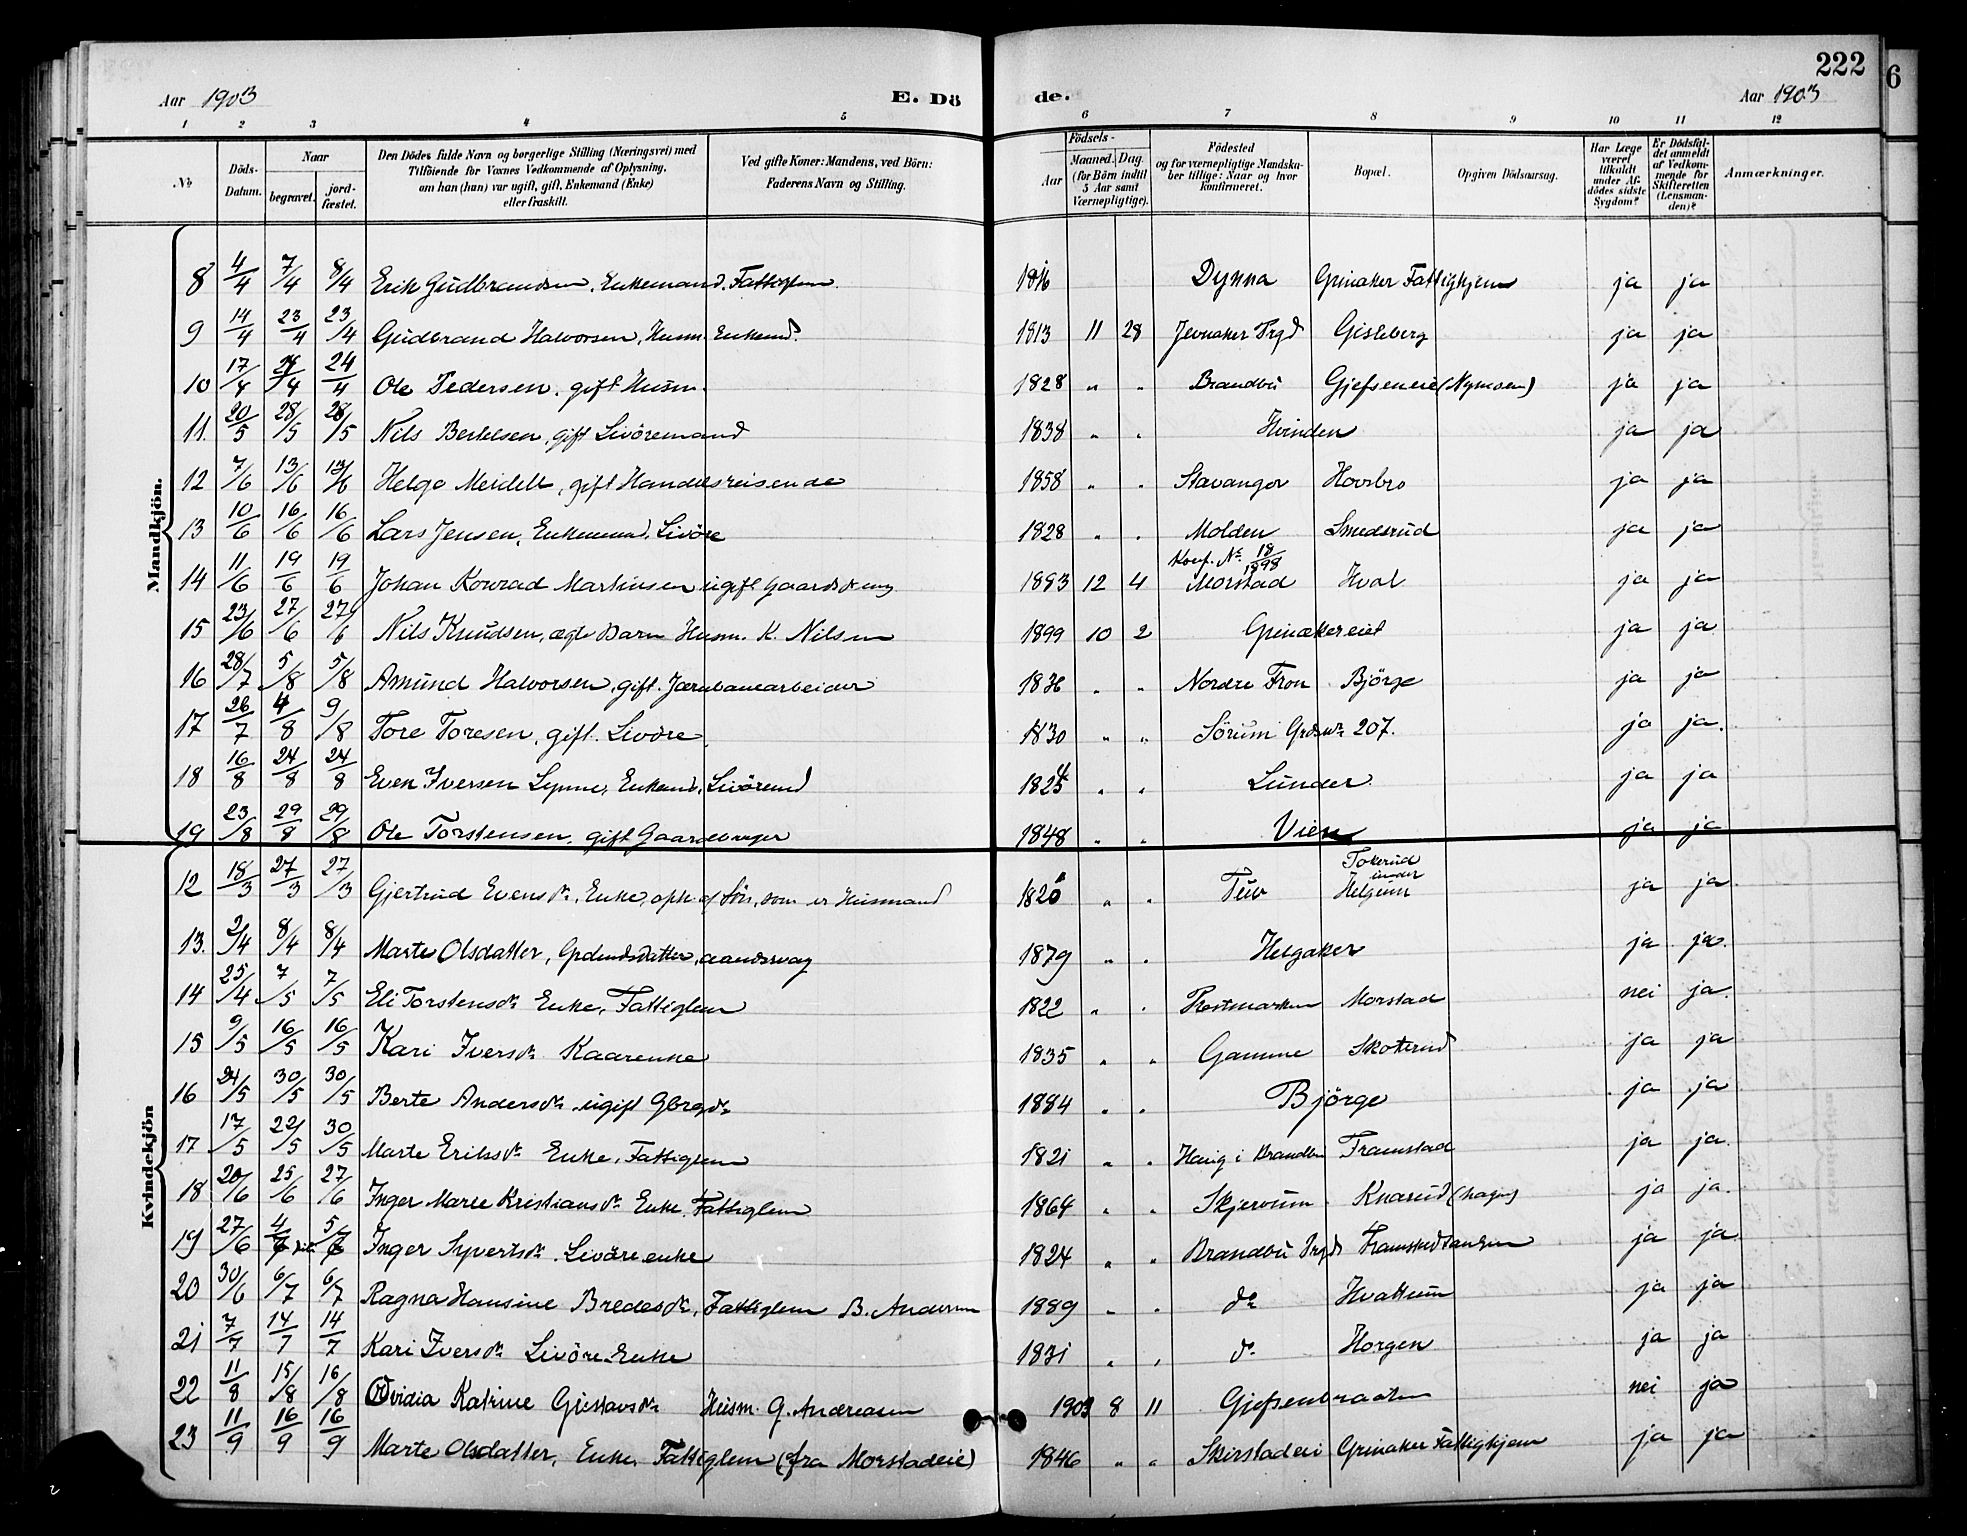 222
6
Aar 1903
E. Dö
de.
Aar 1903
1 2 3 4 5 6 7 8 9 10 11 12
No
Döds-Datum.
Naar
begravet.
jord-fæstet.
Den Dödes fulde Navn og borgerlige Stilling (Næringsvei) med
Tilföiende for Voxnes Vedkommende af Oplysning,
om han (hun) var ugift, gift, Enkemand (Enke)
eller fraskilt.
Ved gifte Koner: Mandens, ved Börn:
Faderens Navn og Stilling.
Födsels-
Aar
Maaned. Dag.
(for Börn indtil
5 Aar samt
Værnepligtige).
Födested
og for værnepligtige Mandska-
ber tillige: Naar og hvor
konfirmeret.
Bopæl.
Opgiven Dödsaarsag.
Har Læge
været
tilkaldt
under Af-
dödes sidste
Sygdom?
Er Dödsfal-
det anmeldt
af Vedkom-
mende for
Skifteretten
(Lensman-
den)?
Anmærkninger.
Mandkjön.
8 4/4 7/4 8/4 Erik Gudbrandsen, Enkemand, Fattiglem 1816 Dynna Grinaker Fattighjem ja ja
9 14/4 23/4 23/4 Gudbrand Halvorsen, Husm. Enkemd. 1813 11 28 Jevnaker Prgd Gisleberg ja ja
10 17/4 24/4 24/4 Ole Pedersen, gift Husm. 1828 " " Brandbu Gjefseneie (Nymoen) ja ja
11. 20/5 28/5 28/5 Nils Bertelsen, gift Livöremand 1838 " " Hvinden ja ja
12 7/6 13/6 13/6 Helge Meidell, gift Handelsreisende 1858 " " Stavanger Hovsbro ja ja
13 10/6 16/6 16/6 Lars Jensen, Enkemand, Livöre 1828 " " Molden Smedsrud ja ja
Konf. No 18/1898
14 11/6 19/6 19/6 Johan Konrad Martinsen ugift Gaards 1883 12 4 Morstad Hval ja ja
15 23/6 27/6 27/6 Nils Knudsen, ægte Barn Husm. K. Nilsen 1899 10 2 Grinakereiet ja ja
16 28/7 5/8 5/8 Amund Halvorsen, gift. Jærnbanearbeider 1836 " " Nordre Fron Björge ja ja
17 26/7 4/8 9/8 Tore Toresen, gift. Livöre 1830 " " Sörum Grdsno 207. ja ja.
18 16/8 24/8 24/8 Even Iversen Lynne, Enkemd, Livöremd 1824 " " Lunder ja ja
19 23/8 29/8 29/8 Ole Torstensen, gift Gaardbruger 1848 " " Vien ja ja
Kvindekjön
Tokerud
under
12 18/3 27/3 27/3 Gjertrud Evensdr, Enke, oph. af Sön, som er Husmand 1820 " " Tuv Helgum ja ja.
13. 2/4 8/4 8/4 Marte Olsdatter, Grdmdsdatter, aandssvag 1879 " " Helgaker ja ja.
14 25/4 7/5 7/5 Eli Torstensdr Enke, Fattiglem 1822 " " Morstad nei ja.
15 9/5 16/5 16/5 Kari Iversdr Kaarenke 1835 " " Gamme Skoterud ja ja
16 24/5 30/5 30/5 Berte Andersdr ugift Gbrgdr 1884 " " Björge ja ja
17 17/5 22/5 30/5 Marte Eriksdr Enke, Fattiglem 1821 " " Haug i Brandbu Framstad ja ja.
18 20/6 25/6 27/6 Inger Marie Kristiansdr Enke, Fattiglem 1864 " " Skjervum Knarud (hagen) ja ja.
19 27/6 4/7 5/7 Inger Syvertsdr Livöreenke 1824 " " Brandbu Prgd Framstadtangen ja ja.
20 30/6 6/7 6/7 Ragna Hansine Bredesdr, Fattiglem B. Andersen 1889 " " do Hvattum ja ja
21 7/7 14/7 14/7 Kari Iversdr Livöre-Enke 1831 " " do Horgen ja ja
22 11/8 15/8 16/8 Ovidia Katrine Gustavsdr Husm. G. Andreasen 1903 8 11 Gjefsenbraaten nei ja
23 11/9 16/9 16/9 Marte Olsdatter, Enke, Fattiglem (fra Morstadeie) 1846 " " Skirstadeie Grinaker Fattighjem ja ja